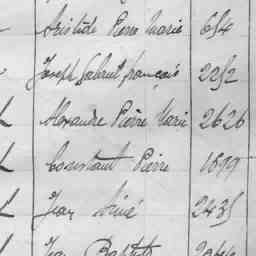 Aristide Pierre Marie 654
Joseph Gabriel françois 2252
Alexandre Pierre Marie 2626
Constant Pierre 1899
Jean Aimé 2435
Jean Baptiste